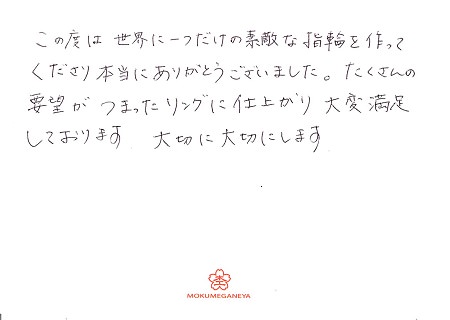 この度は世界に一つだけの素敵な指輪を作って
くださり本当にありがとうございました。たくさんの
要望がつまったリングに仕上がり大変満足
しております 大切に大切にします
MOKUMEGANEYA